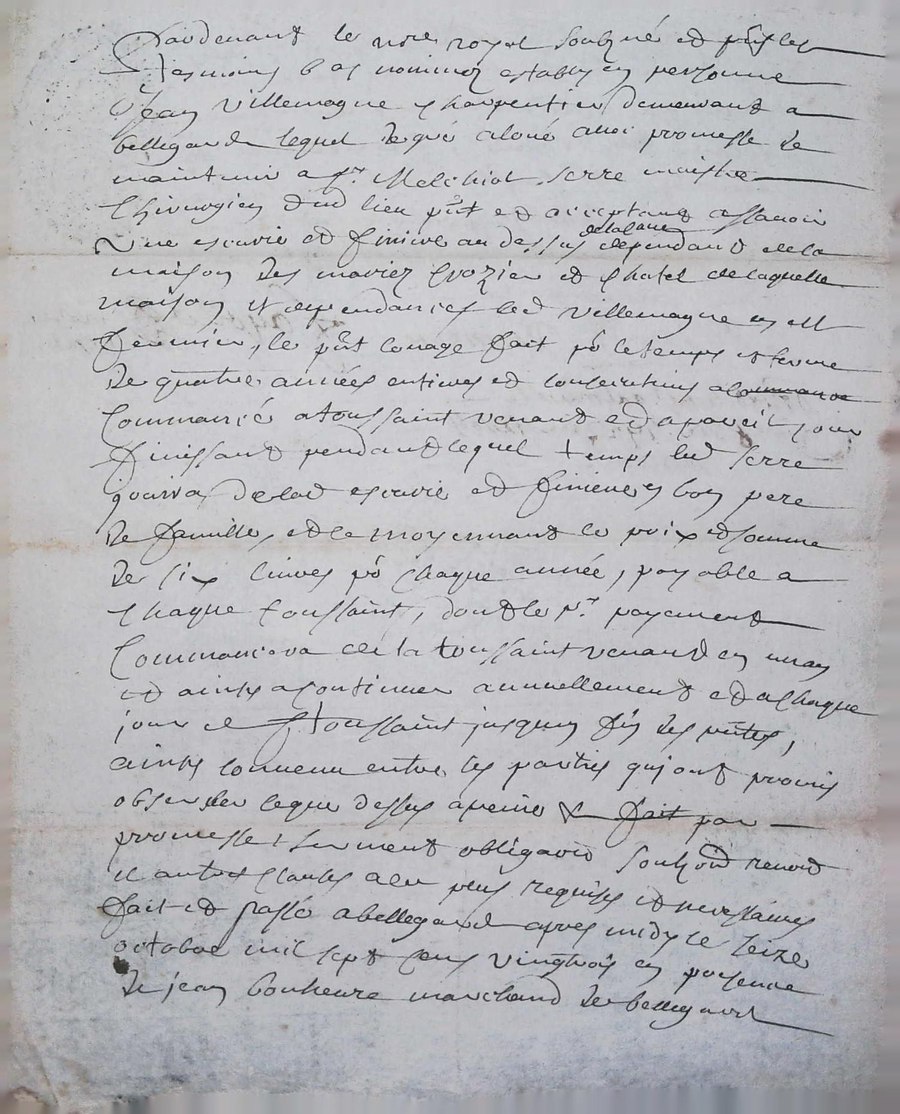 Pardevant le nore royal soubzné et pnts les
tesmoins bas nommez estably en personne
Jean Villemagne charpentier demeurant a
bellegarde lequel de gré a loué avec promesse de
maintenir a Sr. Melchiol serre maistre
Chirurgien dud lieu pnt et acceptant assavoir
delalane
Une escurie et finiere au dessus dependant de la
maison des mariez Crozier et Chatel de laquelle
maison et dependances led Villemagne en est
fermier, le pnt louage fait pr le temps et terme
de quatre années entieres et consecutives a commance
Commancé a toussaint venant et a pareil jour
finissant pendant lequel temps led serre
jouira de lad escurie et finiere en bon pere
de famille, et le moyennant le prix et somme
de six livres pr chaque année, payable a
chaque toussaint, dont le pr. payement
Commancera de la toussaint venant en un an
et ainsy a continuer annuellement et a chaque
jour de toussaint jusques fin des pntes,
ainsy convenu entre les parties qui ont promis
observer le que dessus a peine & fait par
promesse serment obligaon renond
et autres clauses a ce plus requises et necessaires
fait et passé a bellegarde apres midy le seize
octobre mil sept cens vingtrois en presence
de jean bonheure marchand de bellegarde